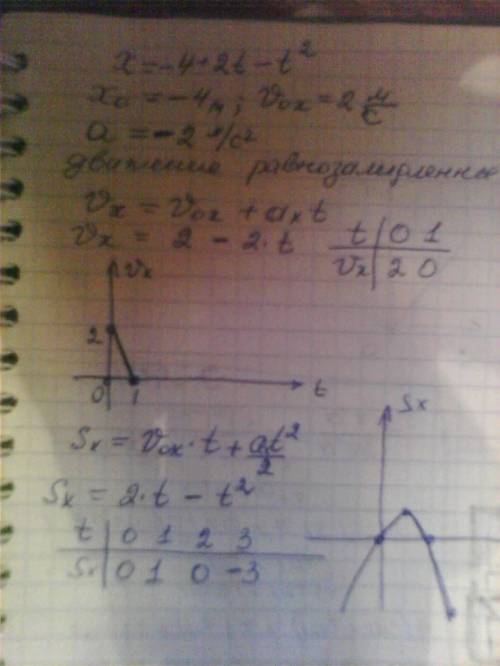 x = -4 + 2t - t²
x₀ = -4м; v₀ₓ = 2 м/с
a = -2 м/с²
движение равнозамедленные
vₓ = v₀ₓ + aₓt
vₓ = 2 - 2·t
t | 0 1
vₓ | 2 0
vₓ
2
0 1 t
Sₓ = v₀ₓ·t + at²/2
Sₓ = 2·t - t²
t | 0 1 2 3
Sₓ | 0 1 0 -3
Sₓ